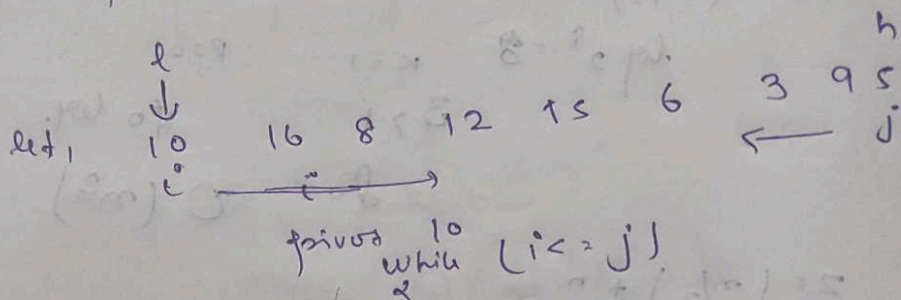 h
l
let, 10 16 8 12 15 6 3 9 5
i i j
pivot 10
while (i<=j)